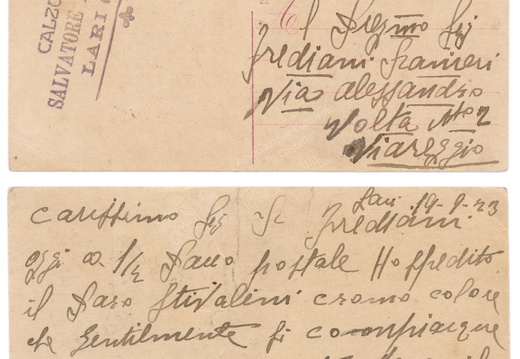 CALZO
SALVATORE
LARI
Al Pregmo Sig
Frediani Ranieri
Via Alessandro
Volta No 2
Viareggio
Lari 19-9-23
Carissimo Sig Frediani
oggi a 1/2 Pacco postale Ho spedito
il Paro Stivalini cromo colore
che Gentilmente si compiacque